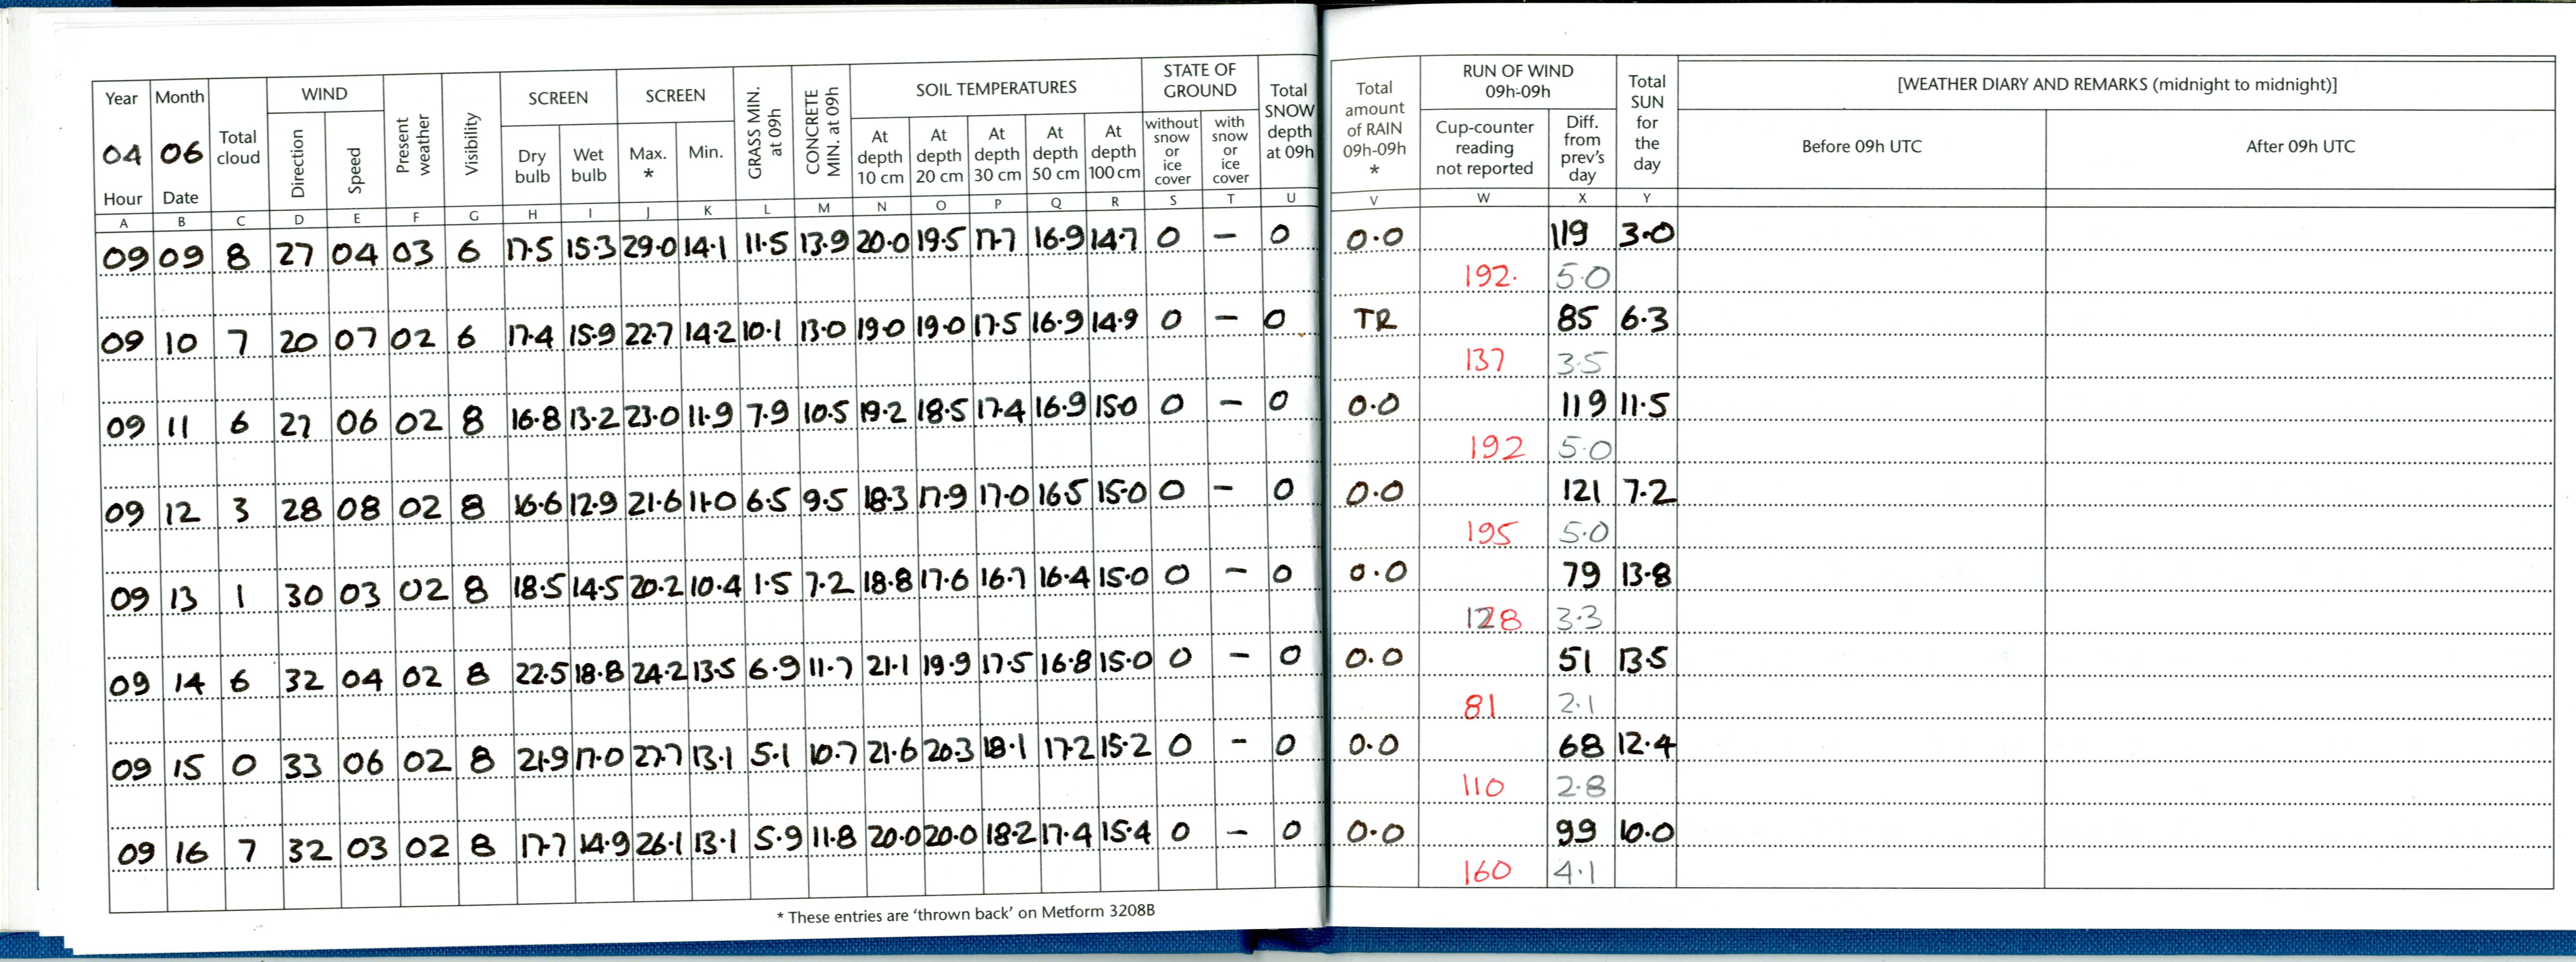 Year Month Total cloud WIND Present weather Visibility SCREEN SCREEN GRASS MIN. at 09h CONCRETE MIN. at 09h SOIL TEMPERATURES STATE OF GROUND Total SNOW depth at 09h Total amount of RAIN 09h-09h * RUN OF WIND 09h-09h Total SUN for the day [WEATHER DIARY AND REMARKS (midnight to midnight)]
04 06 Direction Speed Dry bulb Wet bulb Max. * Min. At depth 10 cm At depth 20 cm At depth 30 cm At depth 50 cm At depth 100 cm without snow or ice cover with snow or ice cover Cup-counter reading not reported Diff. from prev's day Before 09h UTC After 09h UTC
Hour Date
A B C D E F G H I J K L M N O P Q R S T U V W X Y
09 09 8 27 04 03 6 17.5 15.3 29.0 14.1 11.5 13.9 20.0 19.5 17.7 16.9 14.7 0 – 0 0.0 119 3.0
192. 5.0
09 10 7 20 07 02 6 17.4 15.9 22.7 14.2 10.1 13.0 19.0 19.0 17.5 16.9 14.9 0 – 0 TR 85 6.3
137 3.5
09 11 6 27 06 02 8 16.8 13.2 23.0 11.9 7.9 10.5 19.2 18.5 17.4 16.9 15.0 0 – 0 0.0 119 11.5
192 5.0
09 12 3 28 08 02 8 16.6 12.9 21.6 11.0 6.5 9.5 18.3 17.9 17.0 16.5 15.0 0 – 0 0.0 121 7.2
195 5.0
09 13 1 30 03 02 8 18.5 14.5 20.2 10.4 1.5 7.2 18.8 17.6 16.7 16.4 15.0 0 – 0 0.0 79 13.8
128 3.3
09 14 6 32 04 02 8 22.5 18.8 24.2 13.5 6.9 11.7 21.1 19.9 17.5 16.8 15.0 0 – 0 0.0 51 13.5
81 2.1
09 15 0 33 06 02 8 21.9 17.0 27.7 13.1 5.1 10.7 21.6 20.3 18.1 17.2 15.2 0 – 0 0.0 68 12.4
110 2.8
09 16 7 32 03 02 8 17.7 14.9 26.1 13.1 5.9 11.8 20.0 20.0 18.2 17.4 15.4 0 – 0 0.0 99 10.0
160 4.1
* These entries are 'thrown back' on Metform 3208B